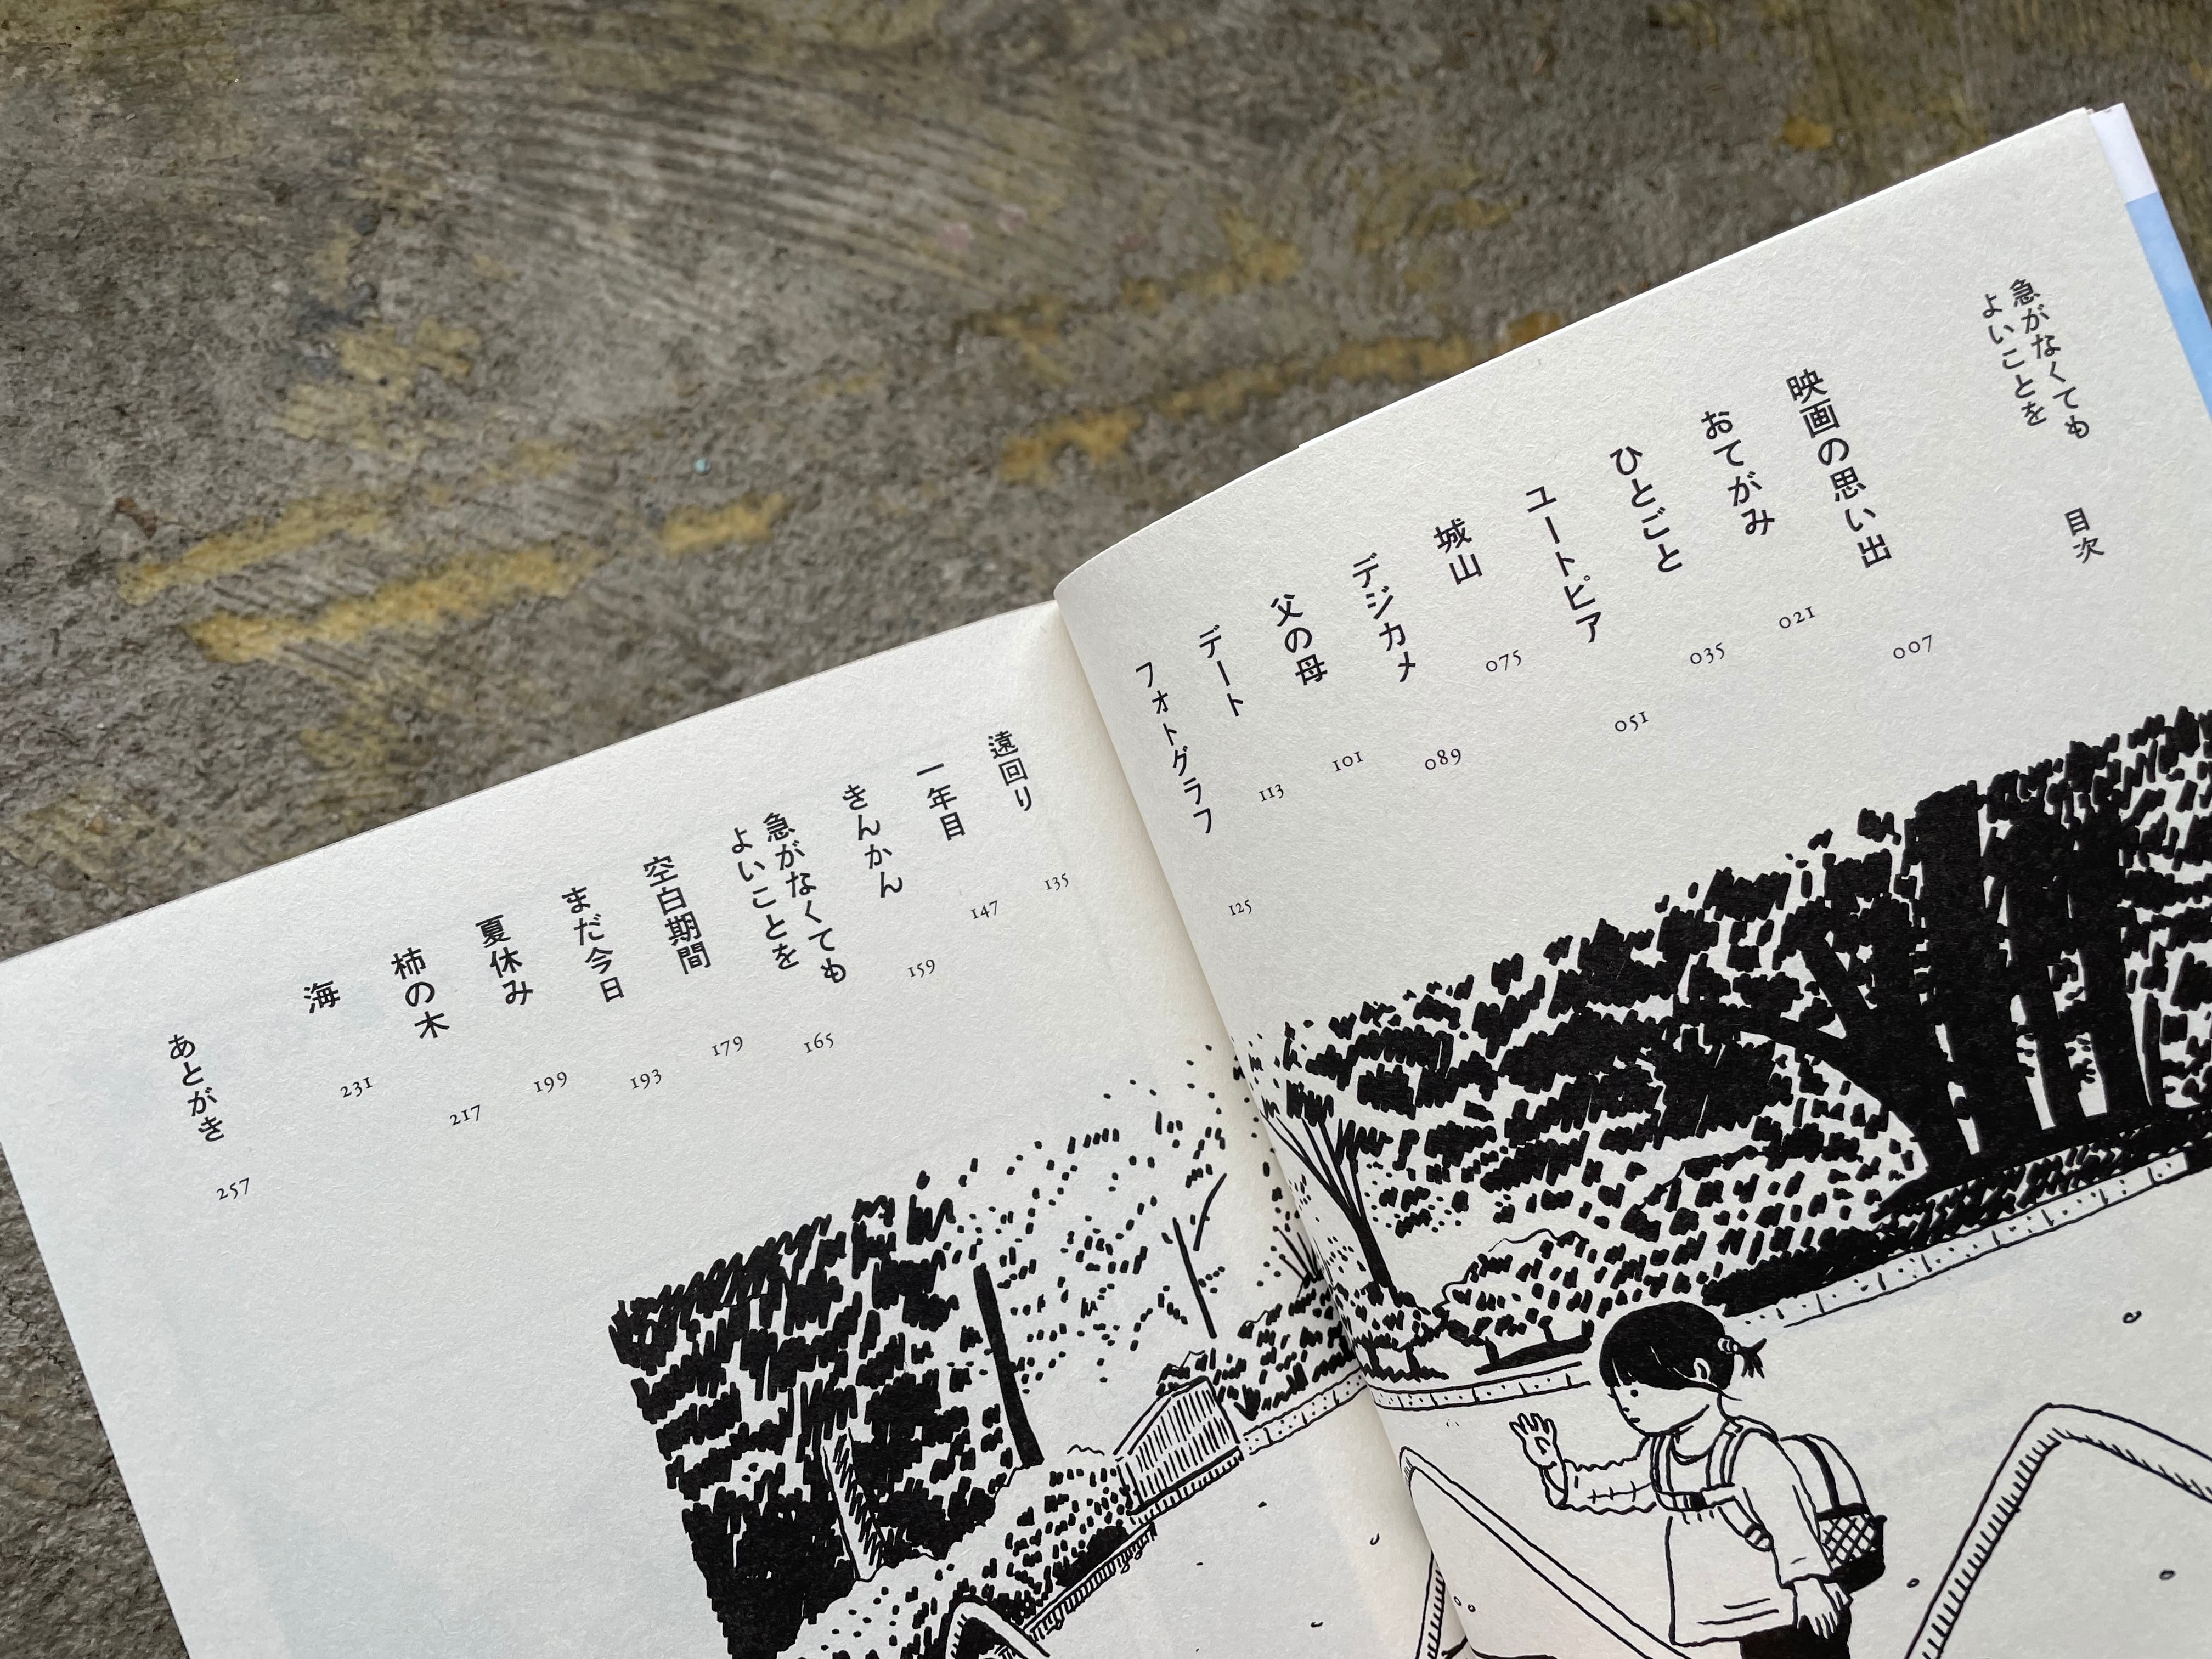 急がなくても
よいことを
目次
映画の思い出
007
おてがみ
021
ひとごと
035
ユートピア
051
城山
075
デジカメ
089
父の母
101
デート
113
フォトグラフ
125
遠回り
135
一年目
147
きんかん
159
急がなくても
よいことを
165
空白期間
179
まだ今日
193
夏休み
199
柿の木
217
海
231
あとがき
257